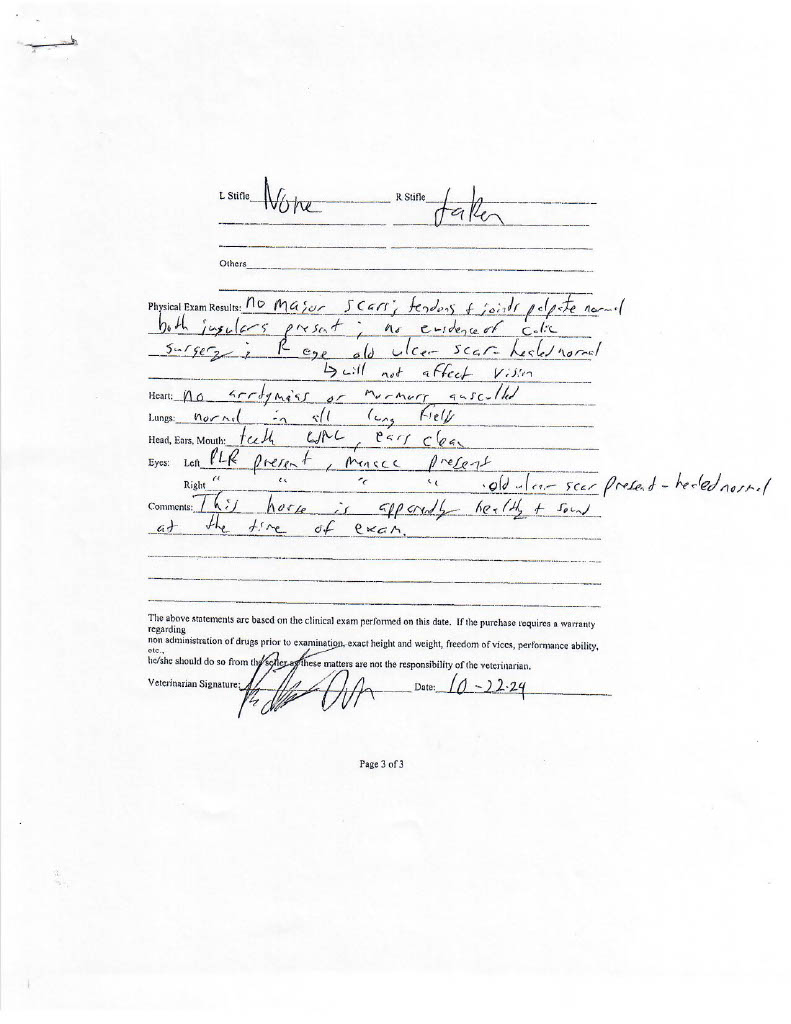 L Stifle None R Stifle taken
Others
Physical Exam Results: no major scars; tendons + joints palpate normal
both jugulars present; no evidence of colic
surgery; R eye old ulcer scar- healed normal
↳ will not affect vision
Heart: no arrdymias or murmurs ausculted
Lungs: normal in all lung fields
Head, Ears, Mouth: teeth WNL, ears clean
Eyes: Left PLR present, menace present
Right " " " " . old ulcer scar present - healed normal
Comments: This horse is apparently healthy + sound
at the time of exam.
The above statements are based on the clinical exam performed on this date. If the purchase requires a warranty
regarding
non administration of drugs prior to examination, exact height and weight, freedom of vices, performance ability,
etc.,
he/she should do so from the seller as these matters are not the responsibility of the veterinarian.
Veterinarian Signature: DVM Date: 10-22-24
Page 3 of 3